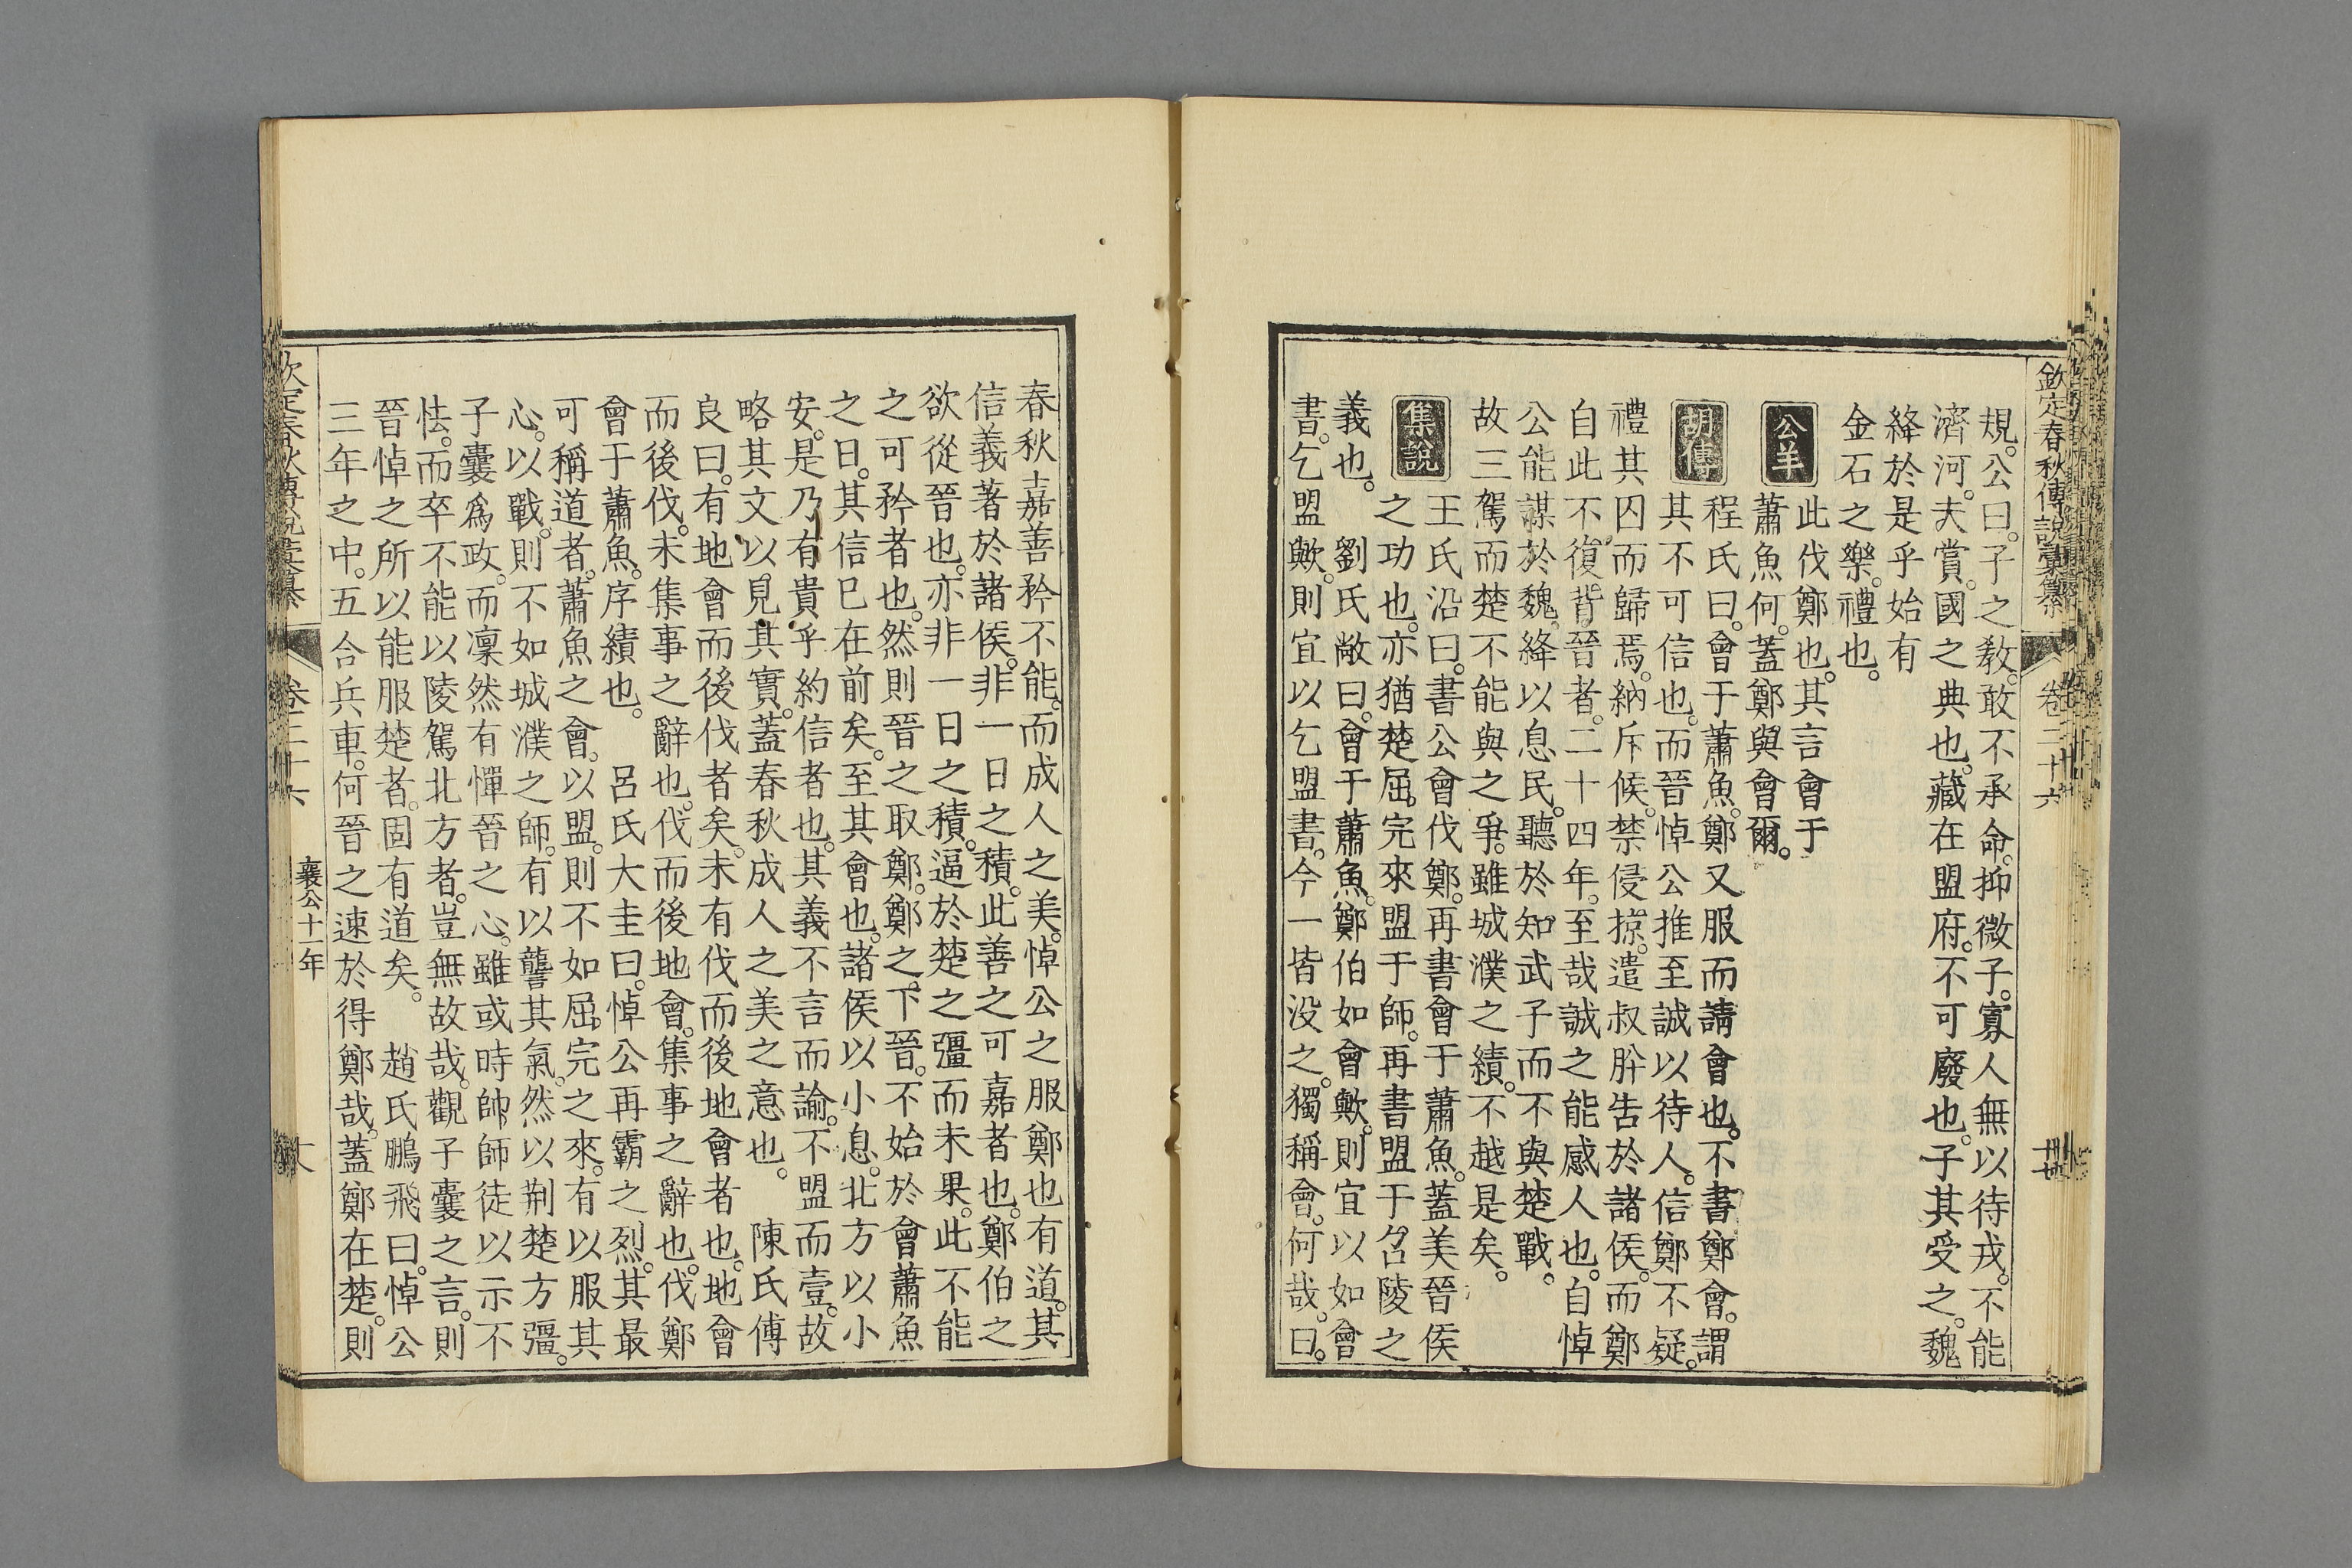 欽定春秋傳說彙纂 卷二十六
規。公曰。子之敎。敢不承命。抑微子。寡人無以待戎。不能
濟河。夫賞。國之典也。藏在盟府。不可廢也。子其受之。魏
絳於是乎始有
金石之樂。禮也。
公羊 此伐鄭也。其言會于
蕭魚何。蓋鄭與會爾。
胡傳 程氏曰。會于蕭魚。鄭又服而請會也。不書鄭會。謂
其不可信也。而晉悼公推至誠以待人。信鄭不疑。
禮其囚而歸焉。納斥候。禁侵掠。遣叔肸告於諸侯。而鄭
自此不復背晉者。二十四年。至哉誠之能感人也。自悼
公能謀於魏絳以息民。聽於知武子而不與楚戰。
故三駕而楚不能與之爭。雖城濮之績。不越是矣。
集說 王氏沿曰。書公會伐鄭。再書會于蕭魚。蓋美晉侯
之功也。亦猶楚屈完來盟于師。再書盟于召陵之
義也。 劉氏敞曰。會于蕭魚。鄭伯如會歟。則宜以如會
書。乞盟歟。則宜以乞盟書。今一皆没之。獨稱會。何哉。曰。
春秋嘉善矜不能。而成人之美。悼公之服鄭也有道。其
信義著於諸侯。非一日之積。此善之可嘉者也。鄭伯之
欲從晉也。亦非一日之積。逼於楚之彊而未果。此不能
之可矜者也。然則晉之取鄭。鄭之下晉。不始於會蕭魚
之日。其信巳在前矣。至其會也。諸侯以小息。北方以小
安。是乃有貴乎約信者也。其義不言而諭。不盟而壹。故
略其文以見其實。蓋春秋成人之美之意也。 陳氏傅
良曰。有地會而後伐者矣。未有伐而後地會者也。地會
而後伐。未集事之辭也。伐而後地會。集事之辭也。伐鄭
會于蕭魚。序績也。 呂氏大圭曰。悼公再霸之烈。其最
可稱道者。蕭魚之會。以盟。則不如屈完之來。有以服其
心。以戰。則不如城濮之師。有以讋其氣。然以荆楚方彊。
子囊爲政。而凜然有憚晉之心。雖或時帥師徒以示不
怯。而卒不能以陵駕北方者。豈無故哉。觀子囊之言。則
晉悼之所以能服楚者。固有道矣。 趙氏鵬飛曰。悼公
三年之中。五合兵車。何晉之速於得鄭哉。蓋鄭在楚。則
欽定春秋傳說彙纂 卷二十六 襄公十一年